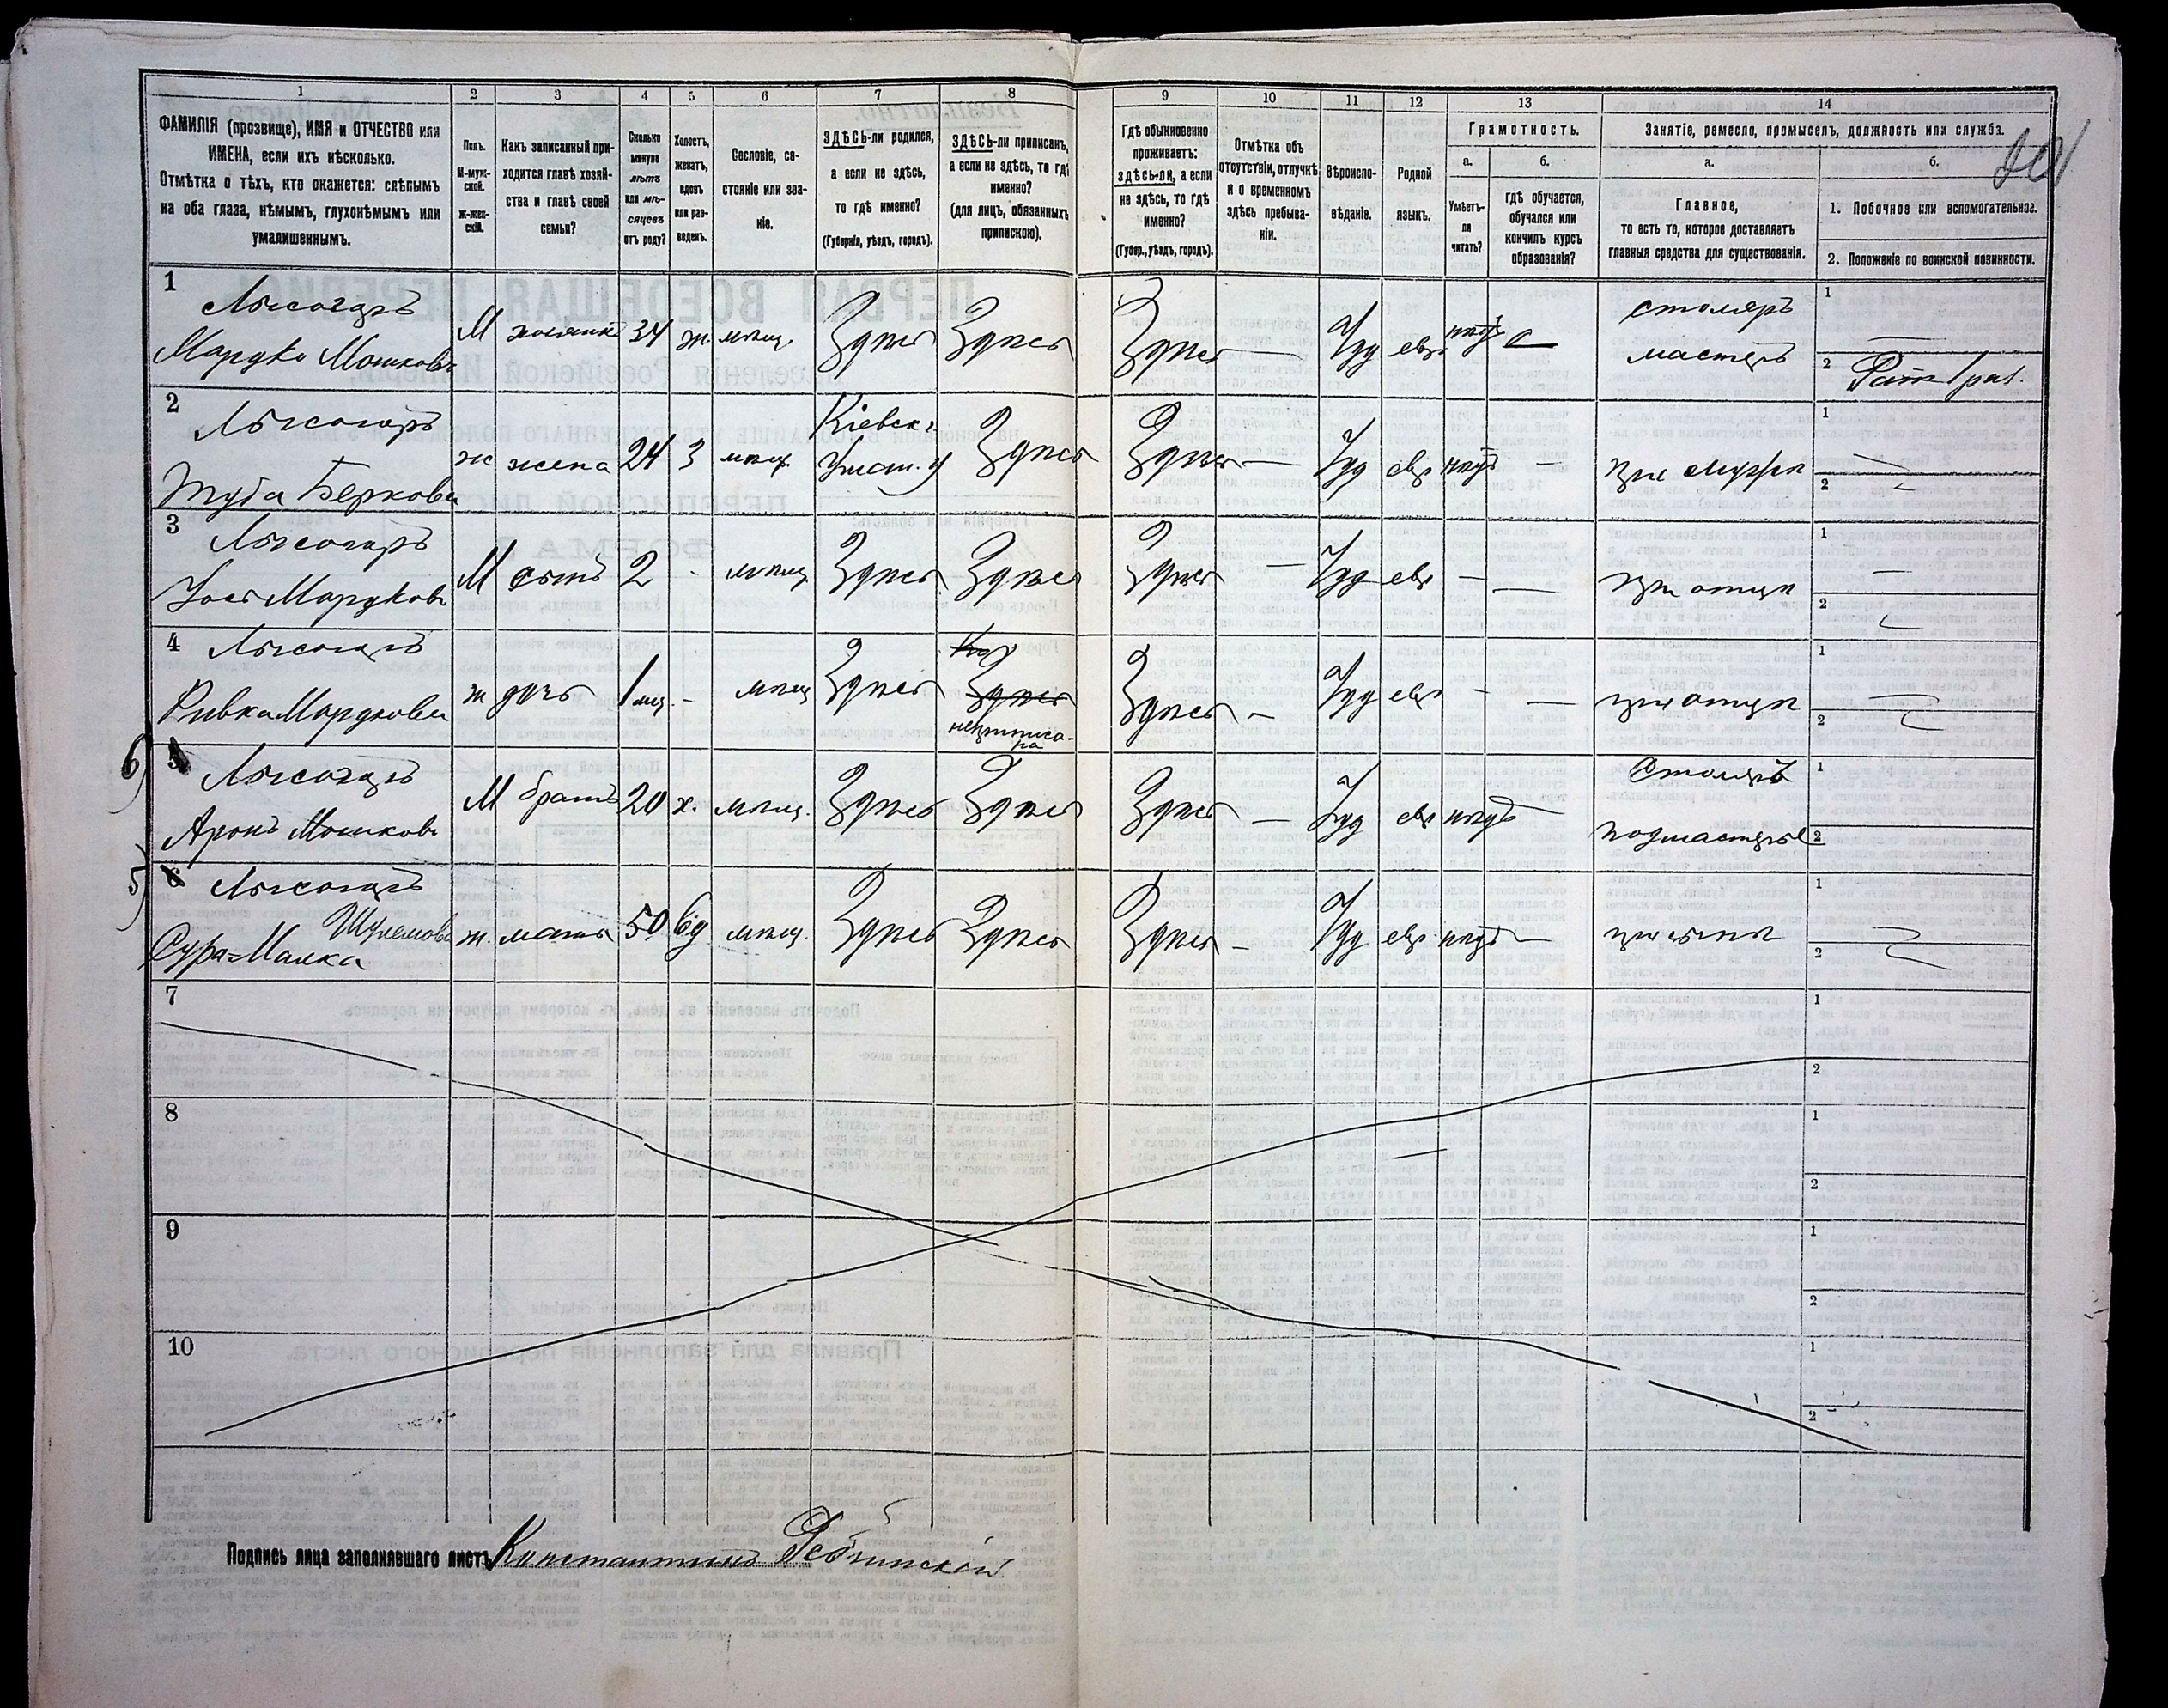 1 2 3 4 5 6 7 8 9 10 11 12 13 14
ФАМИЛІЯ (прозвище), ИМЯ и ОТЧЕСТВО или
ИМЕНА, если ихъ нѣсколько.
Отмѣтка о тѣхъ, кто окажется: слѣпымъ
на оба глаза, нѣмымъ, глухонѣмымъ или
умалишеннымъ.
Полъ.
М-муж-
ской.
ж-жен-
скій.
Какъ записанный при-
ходится главѣ хозяй-
ства и главѣ своей
семьи?
Сколько
минуло
лѣтъ
или мѣ-
сяцевъ
отъ роду?
Холостъ,
женатъ,
вдовъ
или раз-
веденъ.
Сословіе, со-
стояніе или зва-
ніе.
ЗДѢСЬ-ли родился,
а если не здѣсь,
то гдѣ именно?
(Губернія, уѣздъ, городъ).
ЗДѢСЬ-ли приписанъ,
а если не здѣсь, то гдѣ
именно?
(для лицъ, обязанныхъ
припискою).
Гдѣ обыкновенно
проживаетъ:
здѣсь-ли, а если
не здѣсь, то гдѣ
именно?
(Губер., уѣздъ, городъ).
Отмѣтка объ
отсутствіи, отлучкѣ
и о временномъ
здѣсь пребыва-
ніи.
Вѣроиспо-
вѣданіе.
Родной
языкъ.
Грамотность.
а.
Умѣетъ-
ли
читать?
б.
гдѣ обучается,
обучался или
кончилъ курсъ
образованія?
Занятіе, ремесло, промыселъ, должность или служба.
а.
Главное,
то есть то, которое доставляетъ
главныя средства для существованія.
б.
1. Побочное или вспомогательное.
2. Положеніе по воинской повинности.
1
Мардко Мошковъ
М хозяинъ 34 ж мѣщ. Здѣсь Здѣсь Здѣсь — Іуд евр нѣтъ —
столяръ
мастеръ
1 —
2
2
Беркова
ж жена 24 З мѣщ.
Кіевск.
Уман. у
Здѣсь Здѣсь — Іуд евр нѣтъ — при мужѣ
1
2
3
Мардковъ
М сынъ 2 - мѣщ. Здѣсь Здѣсь Здѣсь — Іуд евр — — при отцѣ
1 —
2
4
Ривка Мардкова
ж дочь 1 мѣс. - мѣщ Здѣсь
Здѣсь
неприписа-
на
Здѣсь — Іуд евр - — при отцѣ
1
2
6) 5
Аронъ Мошковъ
М братъ 20 х. мѣщ. Здѣсь Здѣсь Здѣсь — Іуд евр нѣтъ —
столяръ
подмастерье
1
2
5) 6
Шулемова
Сура-Малка
ж. мать 50 вд мѣщ. Здѣсь Здѣсь Здѣсь — Іуд евр нѣтъ — при сынѣ
1
2
7
1
2
8
1
2
9
1
2
10
1
2
Подпись лица заполнявшаго листъ Константинъ